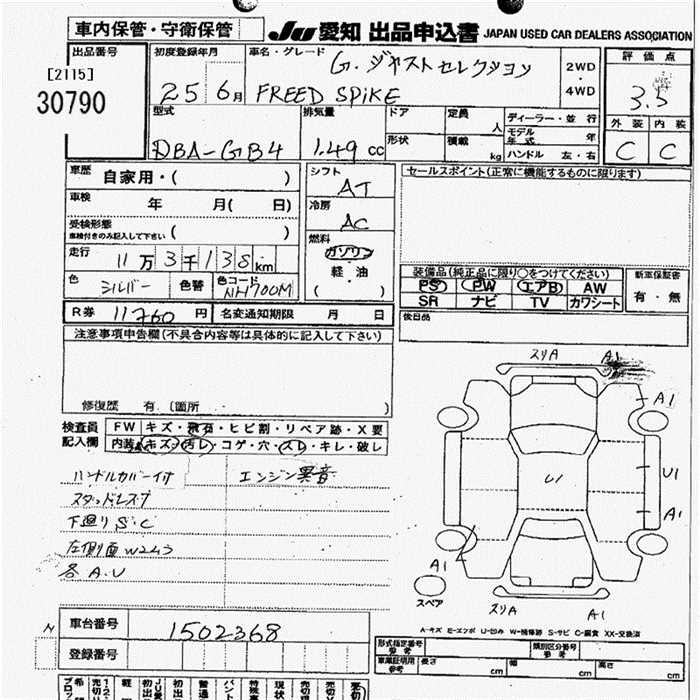 車内保管・守衛保管
JU 愛知 出品申込書 JAPAN USED CAR DEALERS ASSOCIATION
出品番号
[2115]
30790
初度登録年月
25 6月
車名・グレード
G. ジャストセレクション
FREED SPiKE
2WD
・
4WD
評価点
3.5
外装 内装
C C
型式
DBA-GB4
排気量
1.49 cc
ドア
形状
定員
人
積載
kg
ディーラー・並行
モデル年式 年
ハンドル 左・右
車歴
自家用・( )
車検
年 月( 日)
受検形態
車検付きのみ記入して下さい ( )
走行
11万3千138km
色
シルバー
色替
色コード
NH700M
シフト
AT
冷房
AC
燃料
ガソリン
軽・油
( )
セールスポイント(正常に機能するものに限ります)
装備品(純正品に限り○をつけてください)
PS PW エアB AW
SR ナビ TV カワシート
新車保証書
有・無
後日品
R券 11760 円
名変通知期限 月 日
注意事項申告欄(不具合内容等は具体的に記入して下さい)
修復歴 有.(箇所 )
検査員
記入欄
FW キズ・飛石・ヒビ割・リペア跡・X要
内装 キズ・汚レ・コゲ・穴・スレ・キレ・破レ
ハンドルカバー付
エンジン異音
スタッドレスタ
下廻りS.C
左側面W2
各A.U
スリA A1
A1
U1
U1
A1
A1
スペア
スリA A1
A-キズ E-エクボ U-凹み W-補修跡 S-サビ C-腐食 XX-交換済
車台番号
1502368
登録番号
形式指定番号
参考
類別区分番号
参考
車庫証明用
参考
長さ cm
幅 cm
高さ cm